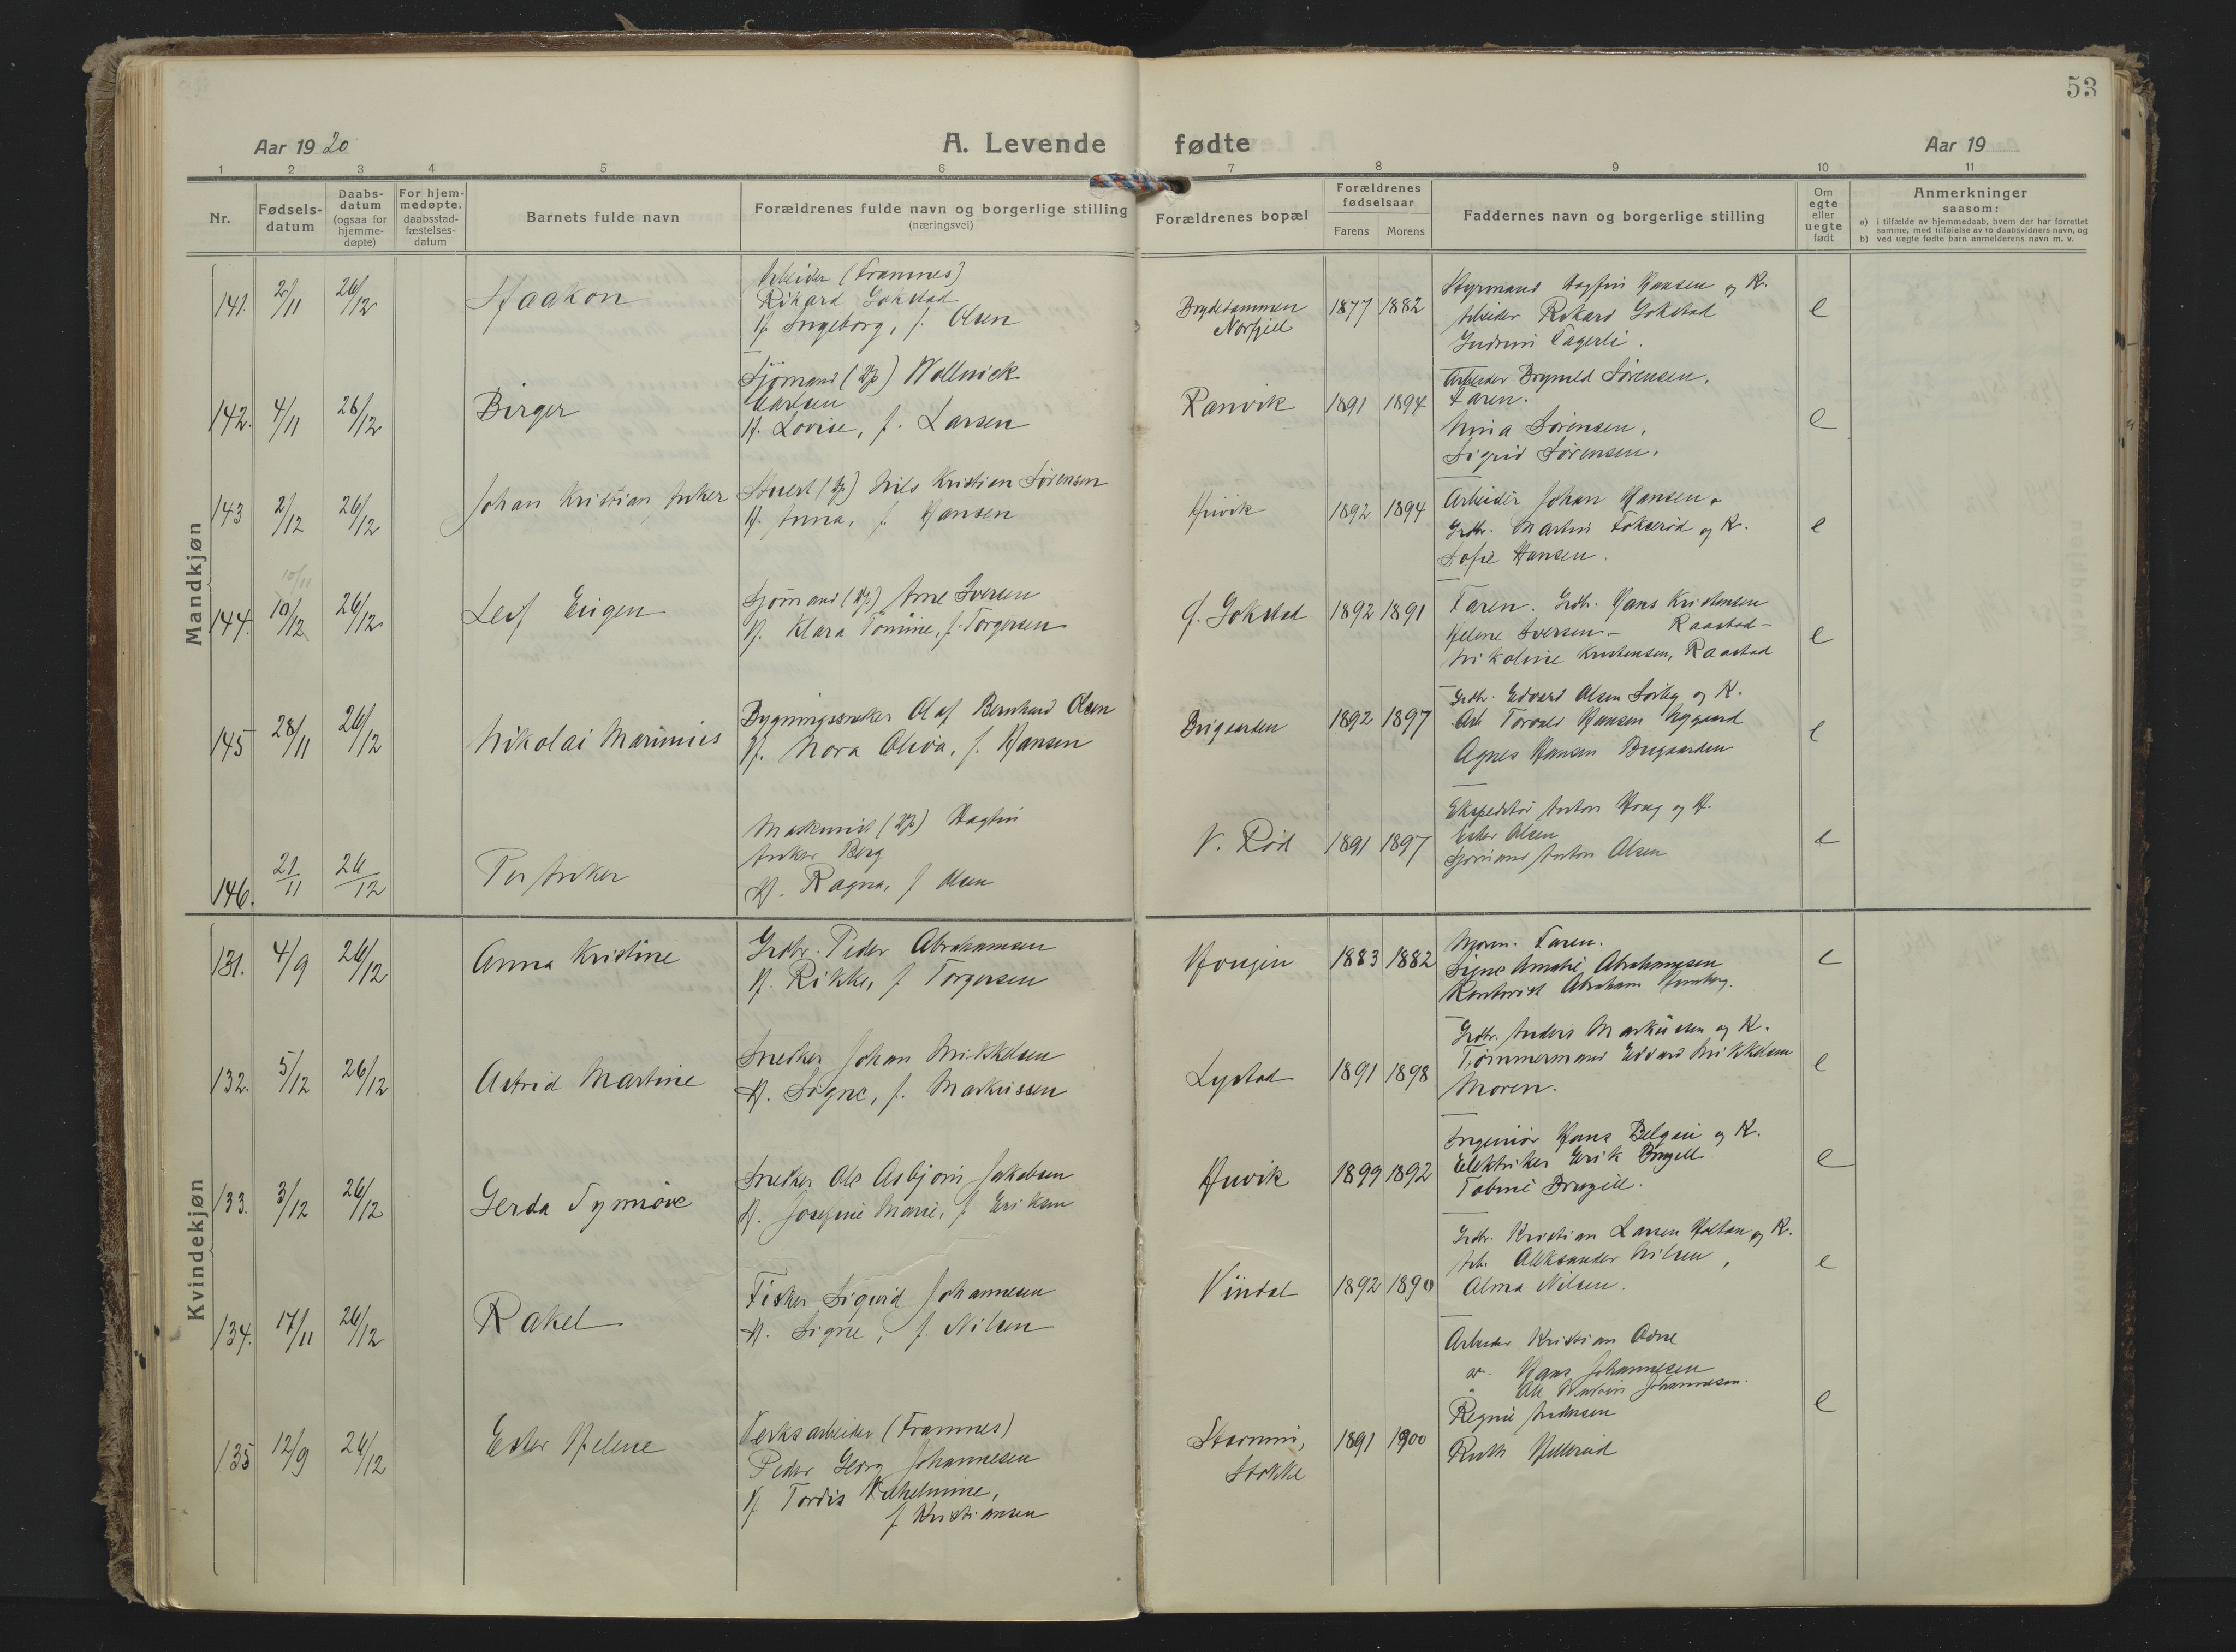 53
Aar 1920
A. Levende
fødte
Aar 19
1 2 3 4 5 6 7 8 9 10 11
Nr.
Fødsels-
datum
Daabs-
datum
(ogsaa for
hjemme-
døpte)
For hjem-
medøpte.
daabsstad-
fæstelses-
datum
Barnets fulde navn
Forældrenes fulde navn og borgerlige stilling
(næringsvei)
Forældrenes bopæl
Forældrenes
fødselsaar
Farens Morens
Faddernes navn og borgerlige stilling
Om
egte
eller
uegte
født
Anmerkninger
saasom:
a) i tilfælde av hjemmedaab, hvem der har forrettet
samme, med tilføielse av to daabsvidners navn, og
b) ved uegte fødte barn anmelderens navn m. v.
Mandkjøn
141. 2/11 26/12 Haakon
Arbeider (Framnes)
Rikard Gokstad
H. Ingeborg, f. Olsen
Brydedammen
1877 1882
Styrmand Dagfin Hansen og K.
Arbeider Rikard Gokstad
Gudrun Fagerli.
e
142. 4/11 26/12 Birger
Sjömand
Carlsen
H. Lovise, f. Larsen
Ranvik 1891 1894
Arbeider Sørensen.
Faren.
Sørensen.
Sigrid Sørensen.
e
143 2/12 26/12 Johan Kristian Anker
Stuert Nils Kristian Sörensen
H. Anna, f. Hansen
Huvik 1892 1894
Arbeider Johan Hansen
Grdbr. Martin Fokserød og K.
Sofie Hansen.
e
10/11
144. 10/12 26/12 Leif Eugen
Sjömand Arne Iversen
H. Klara Tomine, f. Torgersen
Gokstad 1892 1891
Faren. Grdbr. Hans Kristensen
Helene Iversen - Raastad -
Nikoline Kristensen, Raastad
e
145 28/11 26/12 Nikolai Marinius
Bygningssneker Olaf Bernhard Olsen
H. Nora Olivia, f. Hansen
Brigaarden 1892 1897
Grdbr. Edvard Olsen Sörby og K.
Arb Torvald Hansen Nygaard
Agnes Hansen Brigaarden
e
146. 21/11 26/12 Per Anker
Maskinist Dagfin
Anker Berg
H. Ragna, f Olsen
V. Rød 1891 1897
Ekspeditör Anton Haug og H.
Ester Olsen
Sjömand Anton Olsen
e
Kvindekjøn
131. 4/9 26/12 Anna Kristine
Grdbr. Peder Abrahamsen
H. Rikke, f Torgersen
Haugen 1883 1882
Moren. Faren.
Signe Amalie Abrahamsen
Kontorist Abraham
e
132. 5/12 26/12 Astrid Martine
Snedker Johan Mikkelsen
H. Signe, f. Markussen
Lystad 1891 1898
Grdbr. Anders Markussen og K.
Tömmermand Edvard Mikkelsen
Moren.
e
133. 3/12 26/12 Gerda Synnöve
Snedker Ole Asbjørn Jakobsen
H. Josefine Marie, f Eriksen
Huvik 1899 1892
Ingeniör Hans og K.
Elektriker Erik
e
134. 17/11 26/12 Rakel
Fisker Sigurd Johannesen
H. Signe, f. Nilsen
Vindal 1892 1890
Grdbr. Kristian Larsen Holtan og K.
Arb. Aleksander Nilsen,
Alma Nilsen.
e
135 12/9 26/12 Ester Helene
Verksarbeider (Framnes)
Peder Georg Johannesen
H. Tordis Vilhelmine,
f Kristiansen
Stokke
1891 1900
Arbeider Kristian
Hans Johannesen
Johannesen.
Andersen
Ruth
e